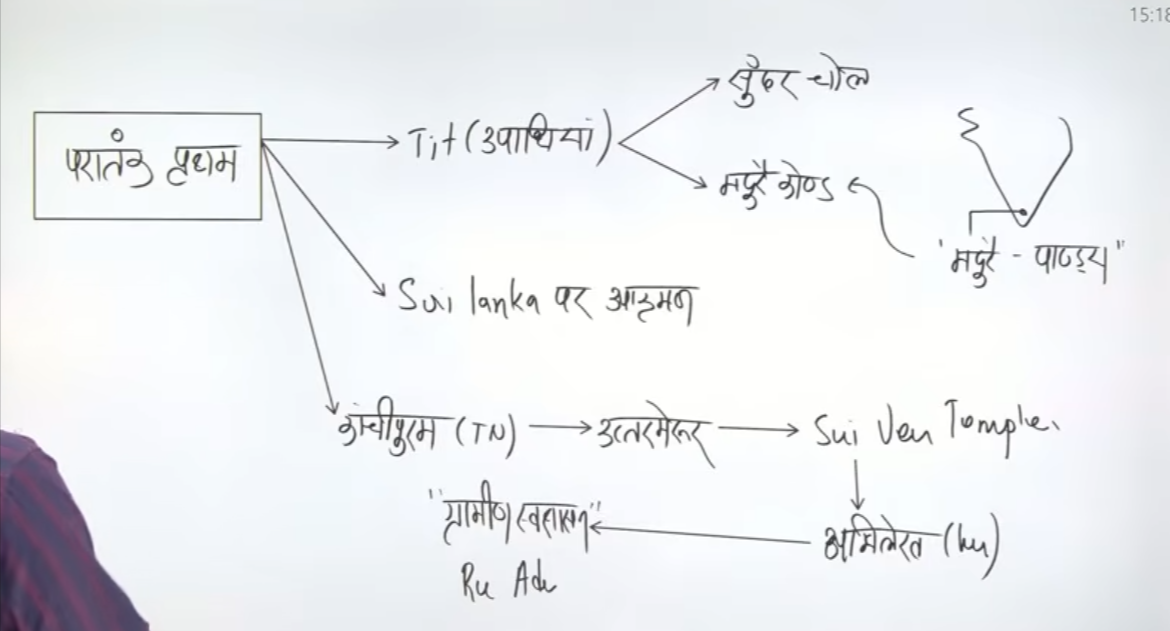 15:18
परातंक प्रथम
Tit (उपाधियां)
सुँदर चोल
मदुरै कोण्ड
"मदुरै - पाण्ड्य"
Sri lanka पर आक्रमण
कांचीपुरम (TN)
उत्तरमेरूर
Sri Ven Temple.
अभिलेख (Inu)
"ग्रामीण स्वशासन"
Ru Adu